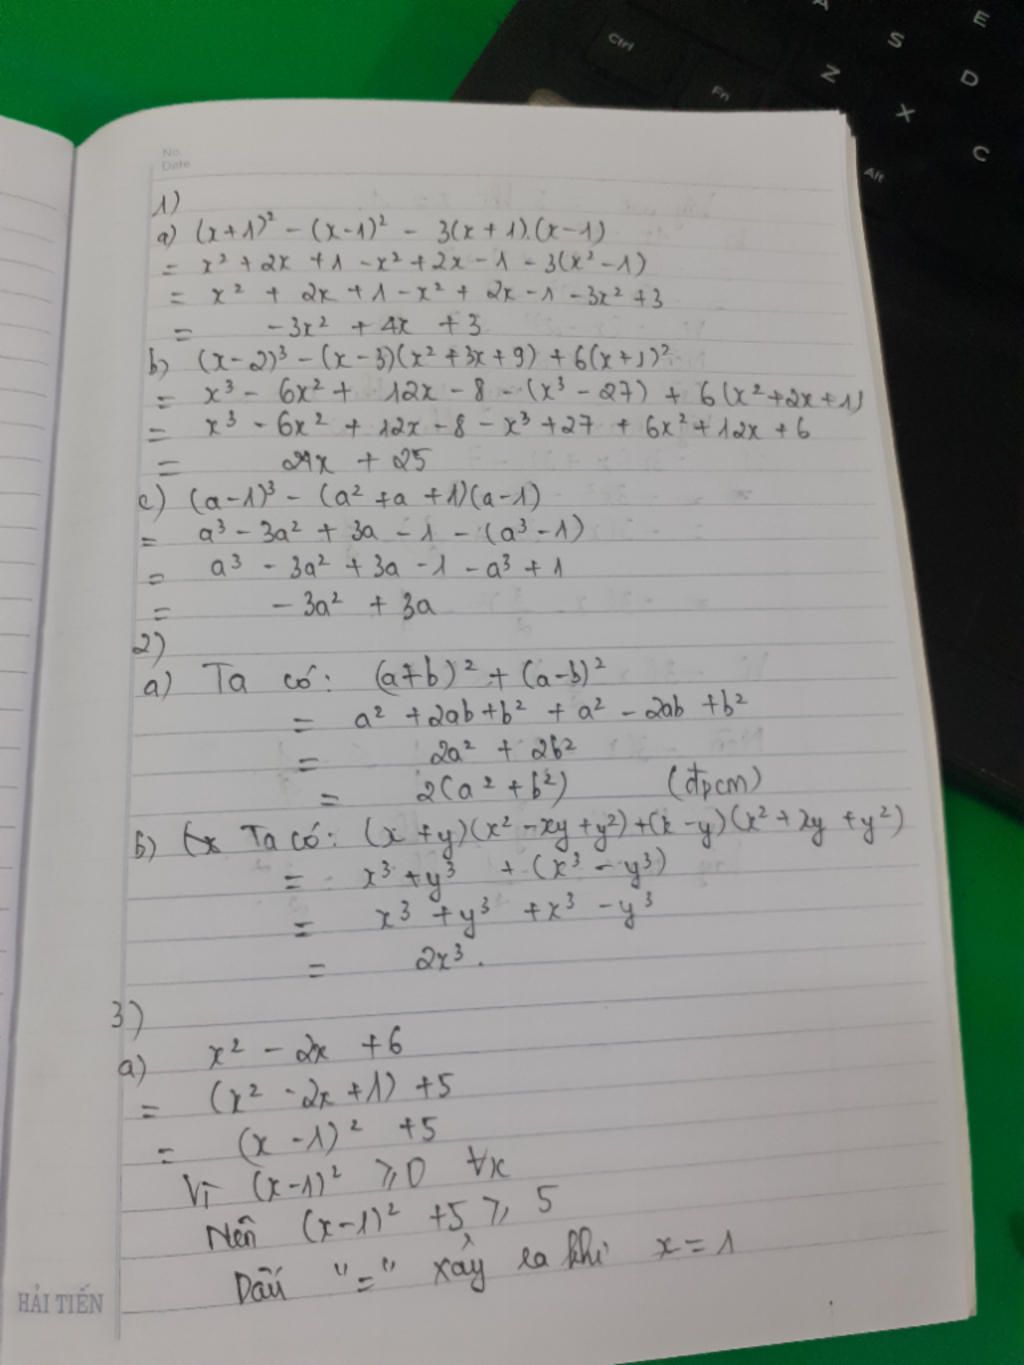 E
S
D
Ctrl
Z
Fn
X
C
Alt
No.
Date
1)
a) (x+1)² - (x-1)² - 3(x+1).(x-1)
= x² + 2x + 1 - x² + 2x - 1 - 3(x² - 1)
= x² + 2x + 1 - x² + 2x - 1 - 3x² + 3
= -3x² + 4x + 3
b) (x-2)³ - (x-3)(x² + 3x + 9) + 6(x+1)²
= x³ - 6x² + 12x - 8 - (x³ - 27) + 6(x² + 2x + 1)
= x³ - 6x² + 12x - 8 - x³ + 27 + 6x² + 12x + 6
= 24x + 25
c) (a-1)³ - (a² + a + 1)(a-1)
= a³ - 3a² + 3a - 1 - (a³ - 1)
= a³ - 3a² + 3a - 1 - a³ + 1
= -3a² + 3a
2)
a) Ta có: (a+b)² + (a-b)²
= a² + 2ab + b² + a² - 2ab + b²
= 2a² + 2b²
= 2(a² + b²) (đpcm)
b) Ta có: (x + y)(x² - xy + y²) + (x - y)(x² + xy + y²)
= x³ + y³ + (x³ - y³)
= x³ + y³ + x³ - y³
= 2x³.
3)
a) x² - 2x + 6
= (x² - 2x + 1) + 5
= (x - 1)² + 5
Vì (x-1)² ⩾ 0 ∀x
Nên (x-1)² + 5 ⩾ 5
Dấu "=" xảy ra khi x = 1
HẢI TIẾN